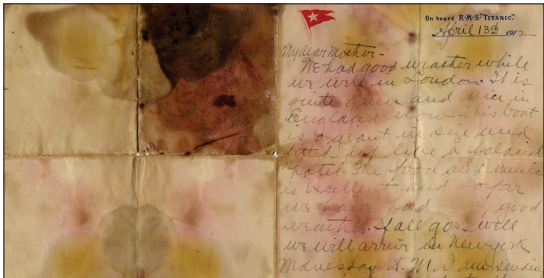 On board R.M.S. "TITANIC."
April 13th 1912
My dear Mother -
We had good weather while
we were in London. It is
quite green and nice in
England now. This boat
is a giant in size and
fitted up like a palacial
hotel. The food and music
is excellent and so far
we have had very good
weather. If all goes well
we will arrive in New York
Wednesday A.M. I am sending